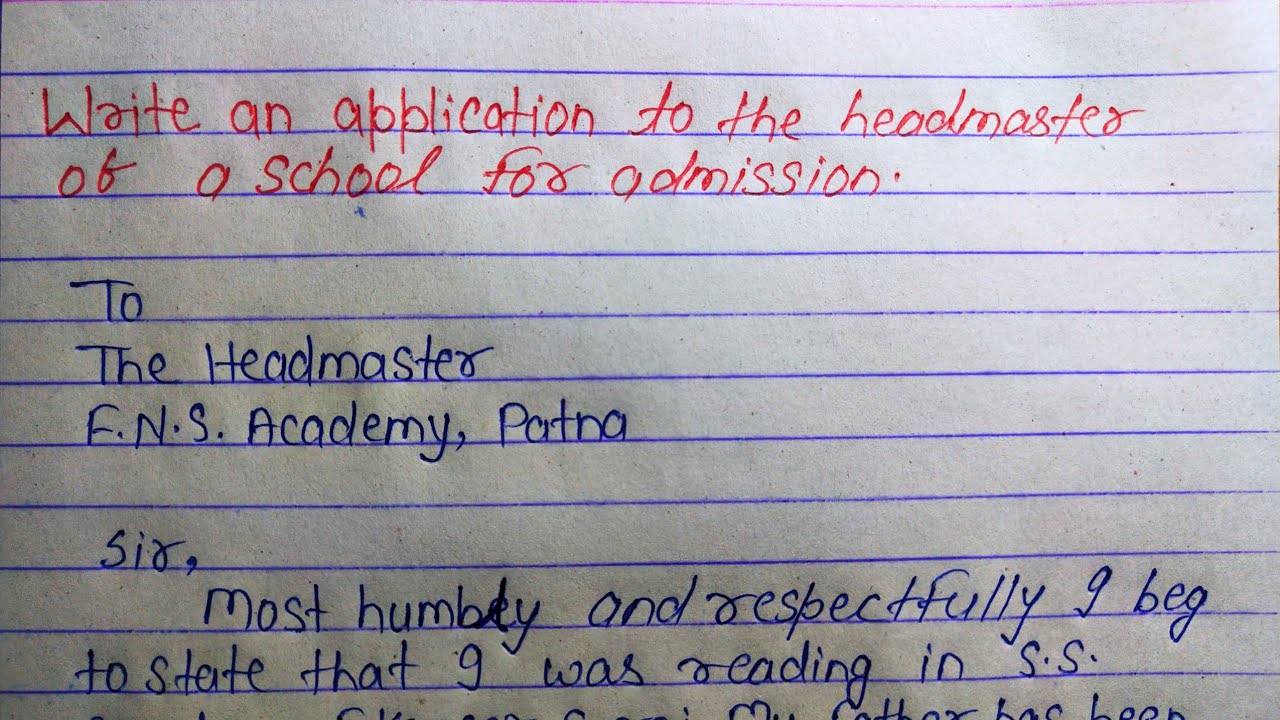 Write an application to the headmaster
of a school for admission.
To
The Headmaster
F.N.S. Academy, Patna
Sir,
Most humbly and respectfully I beg
to state that I was reading in S.S.
My father has been